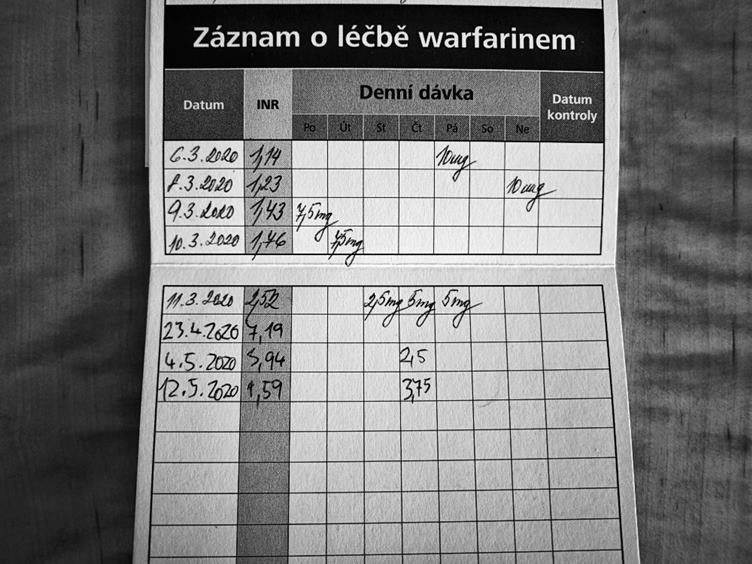 Záznam o léčbě warfarinem
Datum INR Denní dávka Datum kontroly
Po Út St Čt Pá So Ne
6.3.2020 1,14 10mg
8.3.2020 1,23 10mg
9.3.2020 1,43 7,5mg
10.3.2020 1,76 7,5mg
11.3.2020 2,52 2,5mg 5mg 5mg
23.4.2020 7,19
4.5.2020 3,94 2,5
12.5.2020 1,59 3,75